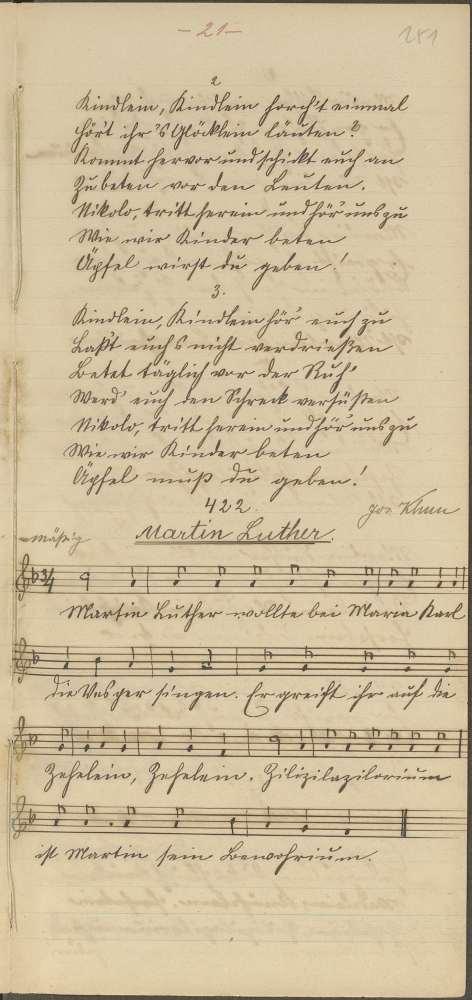 - 21 -
251
2
Kindlein, Kindlein horch't einmal
Hör't ihr 's Glöcklein läuten?
Kommt hervor und schickt euch an
Zu beten vor den Leuten.
Nikolo, tritt herein und hör' uns zu
Wie wir Kinder beten
Äpfel wirst du geben!
3.
Kindlein, Kindlein hör' euch zu
Laßt euch's nicht verdrießen
Betet täglich vor der Ruh'
Werd' euch den Schreck versüßen
Nikolo, tritt herein und hör' uns zu
Wie wir Kinder beten
Äpfel muß du geben!
422.
mäßig
Martin Luther.
3/4
Martin Luther wollte bei Maria Karl
die Vesper singen. Er greift ihr auf die
Zehelein, Zehelein. Zilizilazilorium
ist Martin sein